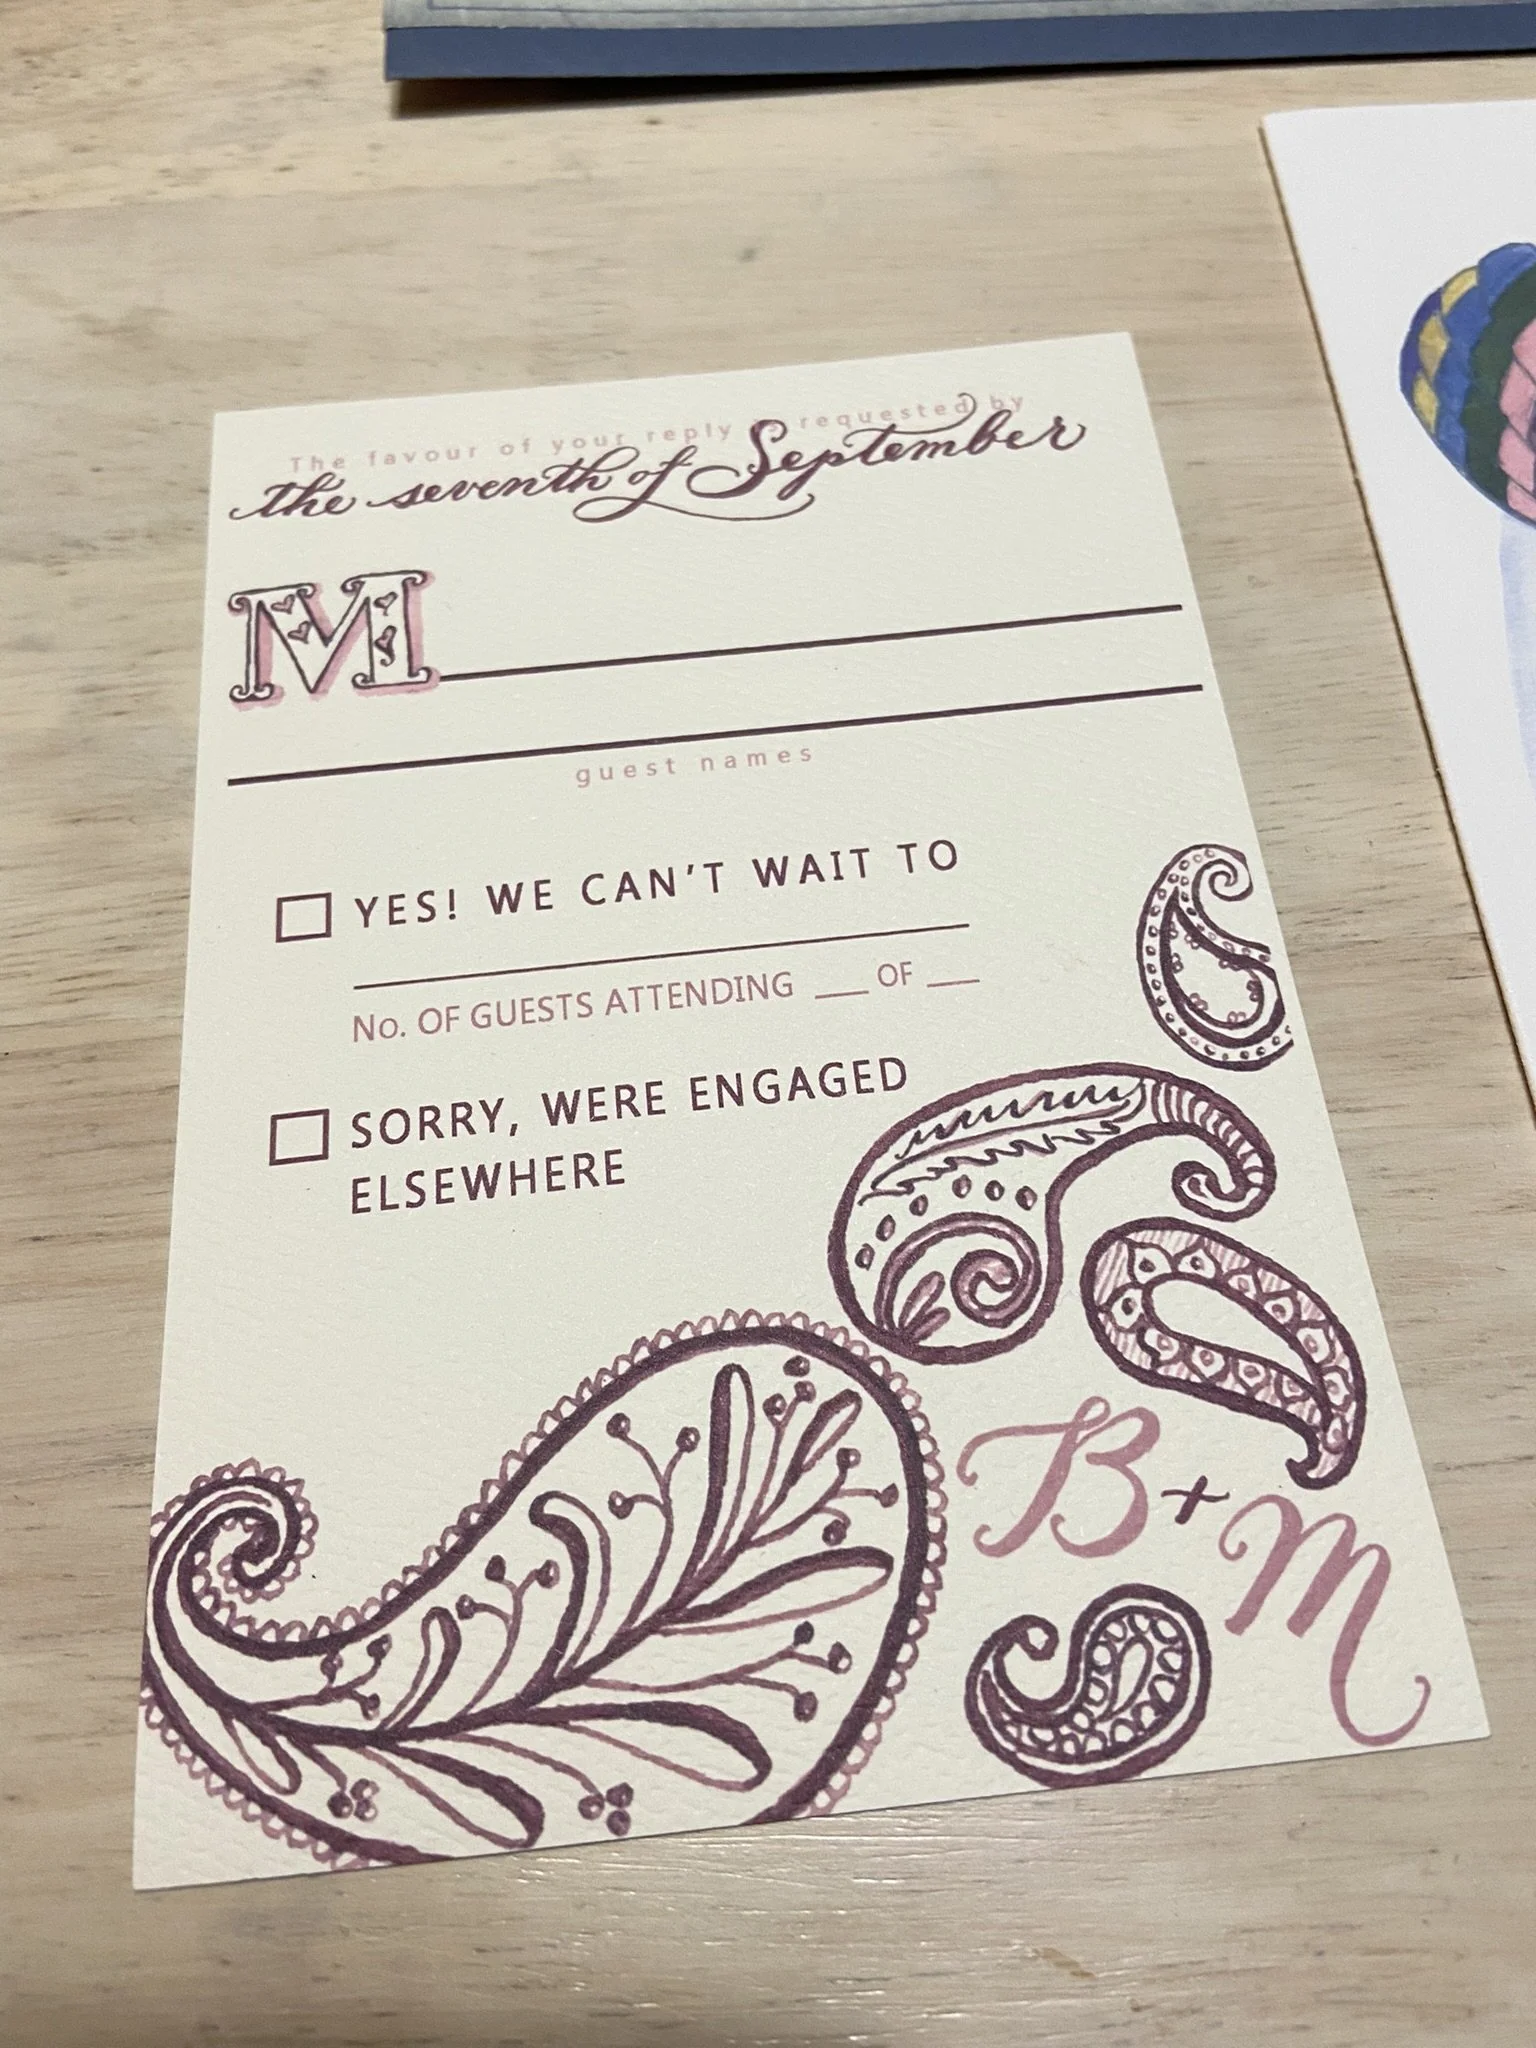 The favour of your reply is requested by
the seventh of September
M
guest names
YES! WE CAN'T WAIT TO
No. OF GUESTS ATTENDING ___ OF ___
SORRY, WERE ENGAGED
ELSEWHERE
B + M